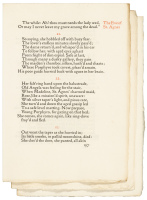 The while: Ah! thou must needs the lady wed,
Or may I never leave my grave among the dead."
The Eve of
St. Agnes
So saying, she hobbled off with busy fear.
The lover's endless minutes slowly pass'd;
The dame return'd, and whisper'd in his ear
To follow her; with aged eyes aghast
From fright of dim espial. Safe at last,
Through many a dusky gallery, they gain
The maiden's chamber, silken, hush'd and chaste;
Where Porphyro took covert, pleas'd amain.
His poor guide hurried back with agues in her brain.
Her falt'ring hand upon the balustrade,
Old Angela was feeling for the stair,
When Madeline, St. Agnes' charmed maid,
Rose, like a mission'd spirit, unaware:
With silver taper's light, and pious care,
She turn'd and down the aged gossip led
To a safe level matting. Now prepare,
Young Porphyro, for gazing on that bed;
She comes, she comes again, like ring-dove
fray'd and fled.
Out went the taper as she hurried in;
Its little smoke, in pallid moonshine, died:
She clos'd the door, she panted, all akin